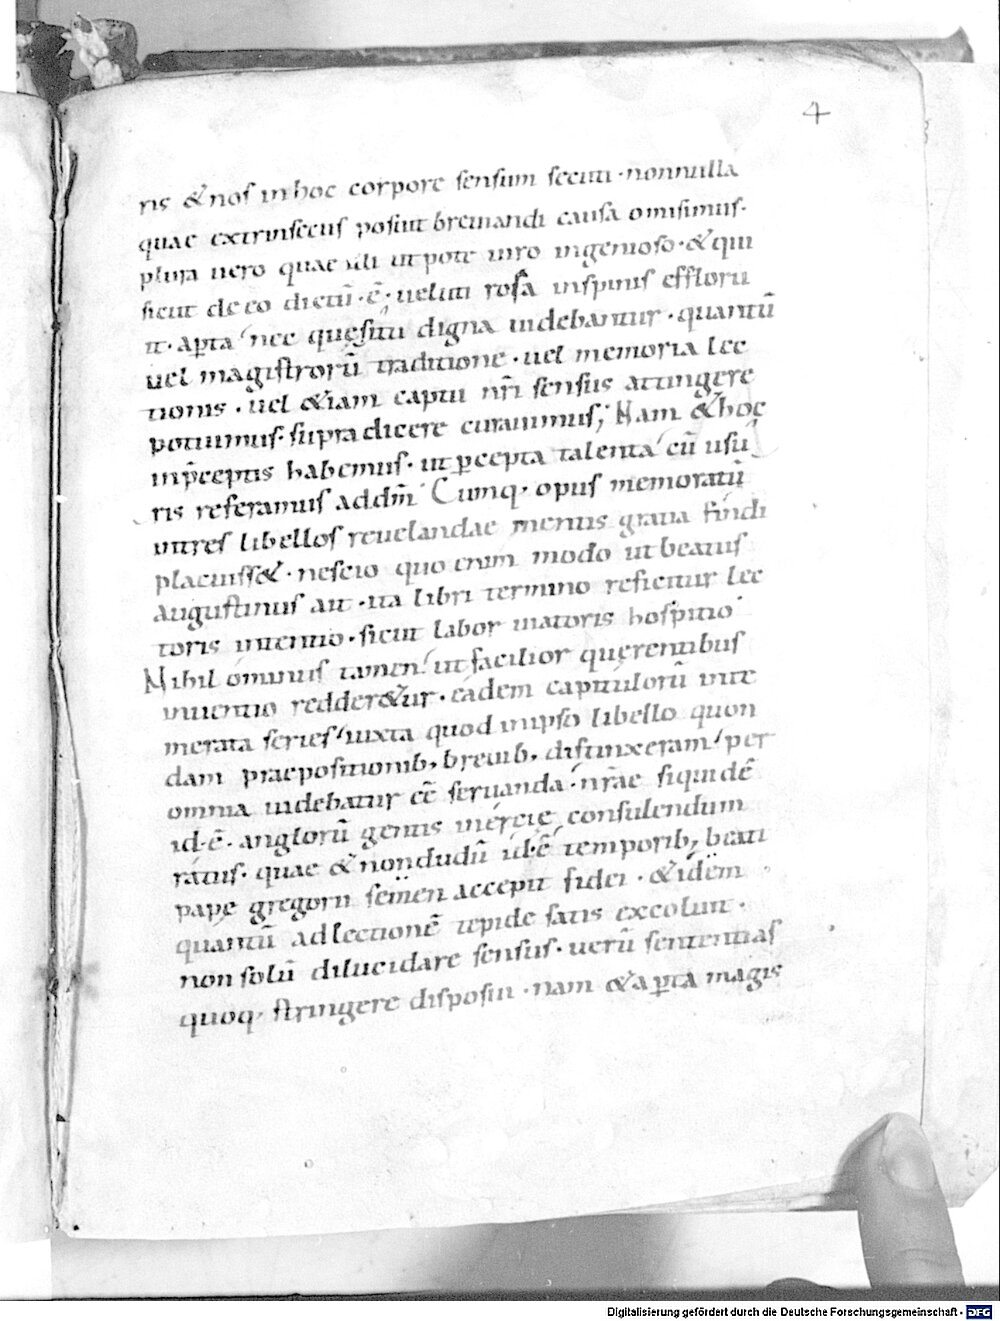 4
ris & nos in hoc corpore sensum secuti · nonnulla
quae extrinsecus posuit breuiandi causa omisimus·
plura uero quae illi utpote uiro ingenioso · & qui
sicut de eo dictū · ē · ueluti rosa inspinis effloru
it · apta nec quęsitu digna uidebantur · quantū
uel magistrorū traditione · uel memoria lec
tionis · uel &iam captu nr̄i sensus attingere
potuimus· supradicere curauimus; Nam & hoc
inp̄ceptis habemus · ut p̲cepta talenta cū usu
ris referamus addn̄m Cumq· opus memoratū
intres libellos reuelandae mentis gratia findi
placuiss& · nescio quo enim modo ut beatus
augustinus ait · ita libri termino reficitur lec
toris intentio · sicut labor uiatoris hospitio
Nihil ominus tamen ut facilior quęrentibus
inuentio redder&ur · eadem capitulorū inte
merata series iuxta quod inipso libello quon
dam praepositionib, breuib, distinxeram per
omnia uidebatur eē seruanda · nr̄ae siquidē
id·ē· anglorū gentis inertię consulendum
ratus · quae & nondudū id·ē temporib, beati
papę gregorii semen accepit fidei · & idem
quantū ad lectionē tepide satis excoluit ·
non solū dilucidare sensus · uerū sententias
quoq· stringere disposui · nam & ap̲ta magis
Digitalisierung gefördert durch die Deutsche Forschungsgemeinschaft - DFG